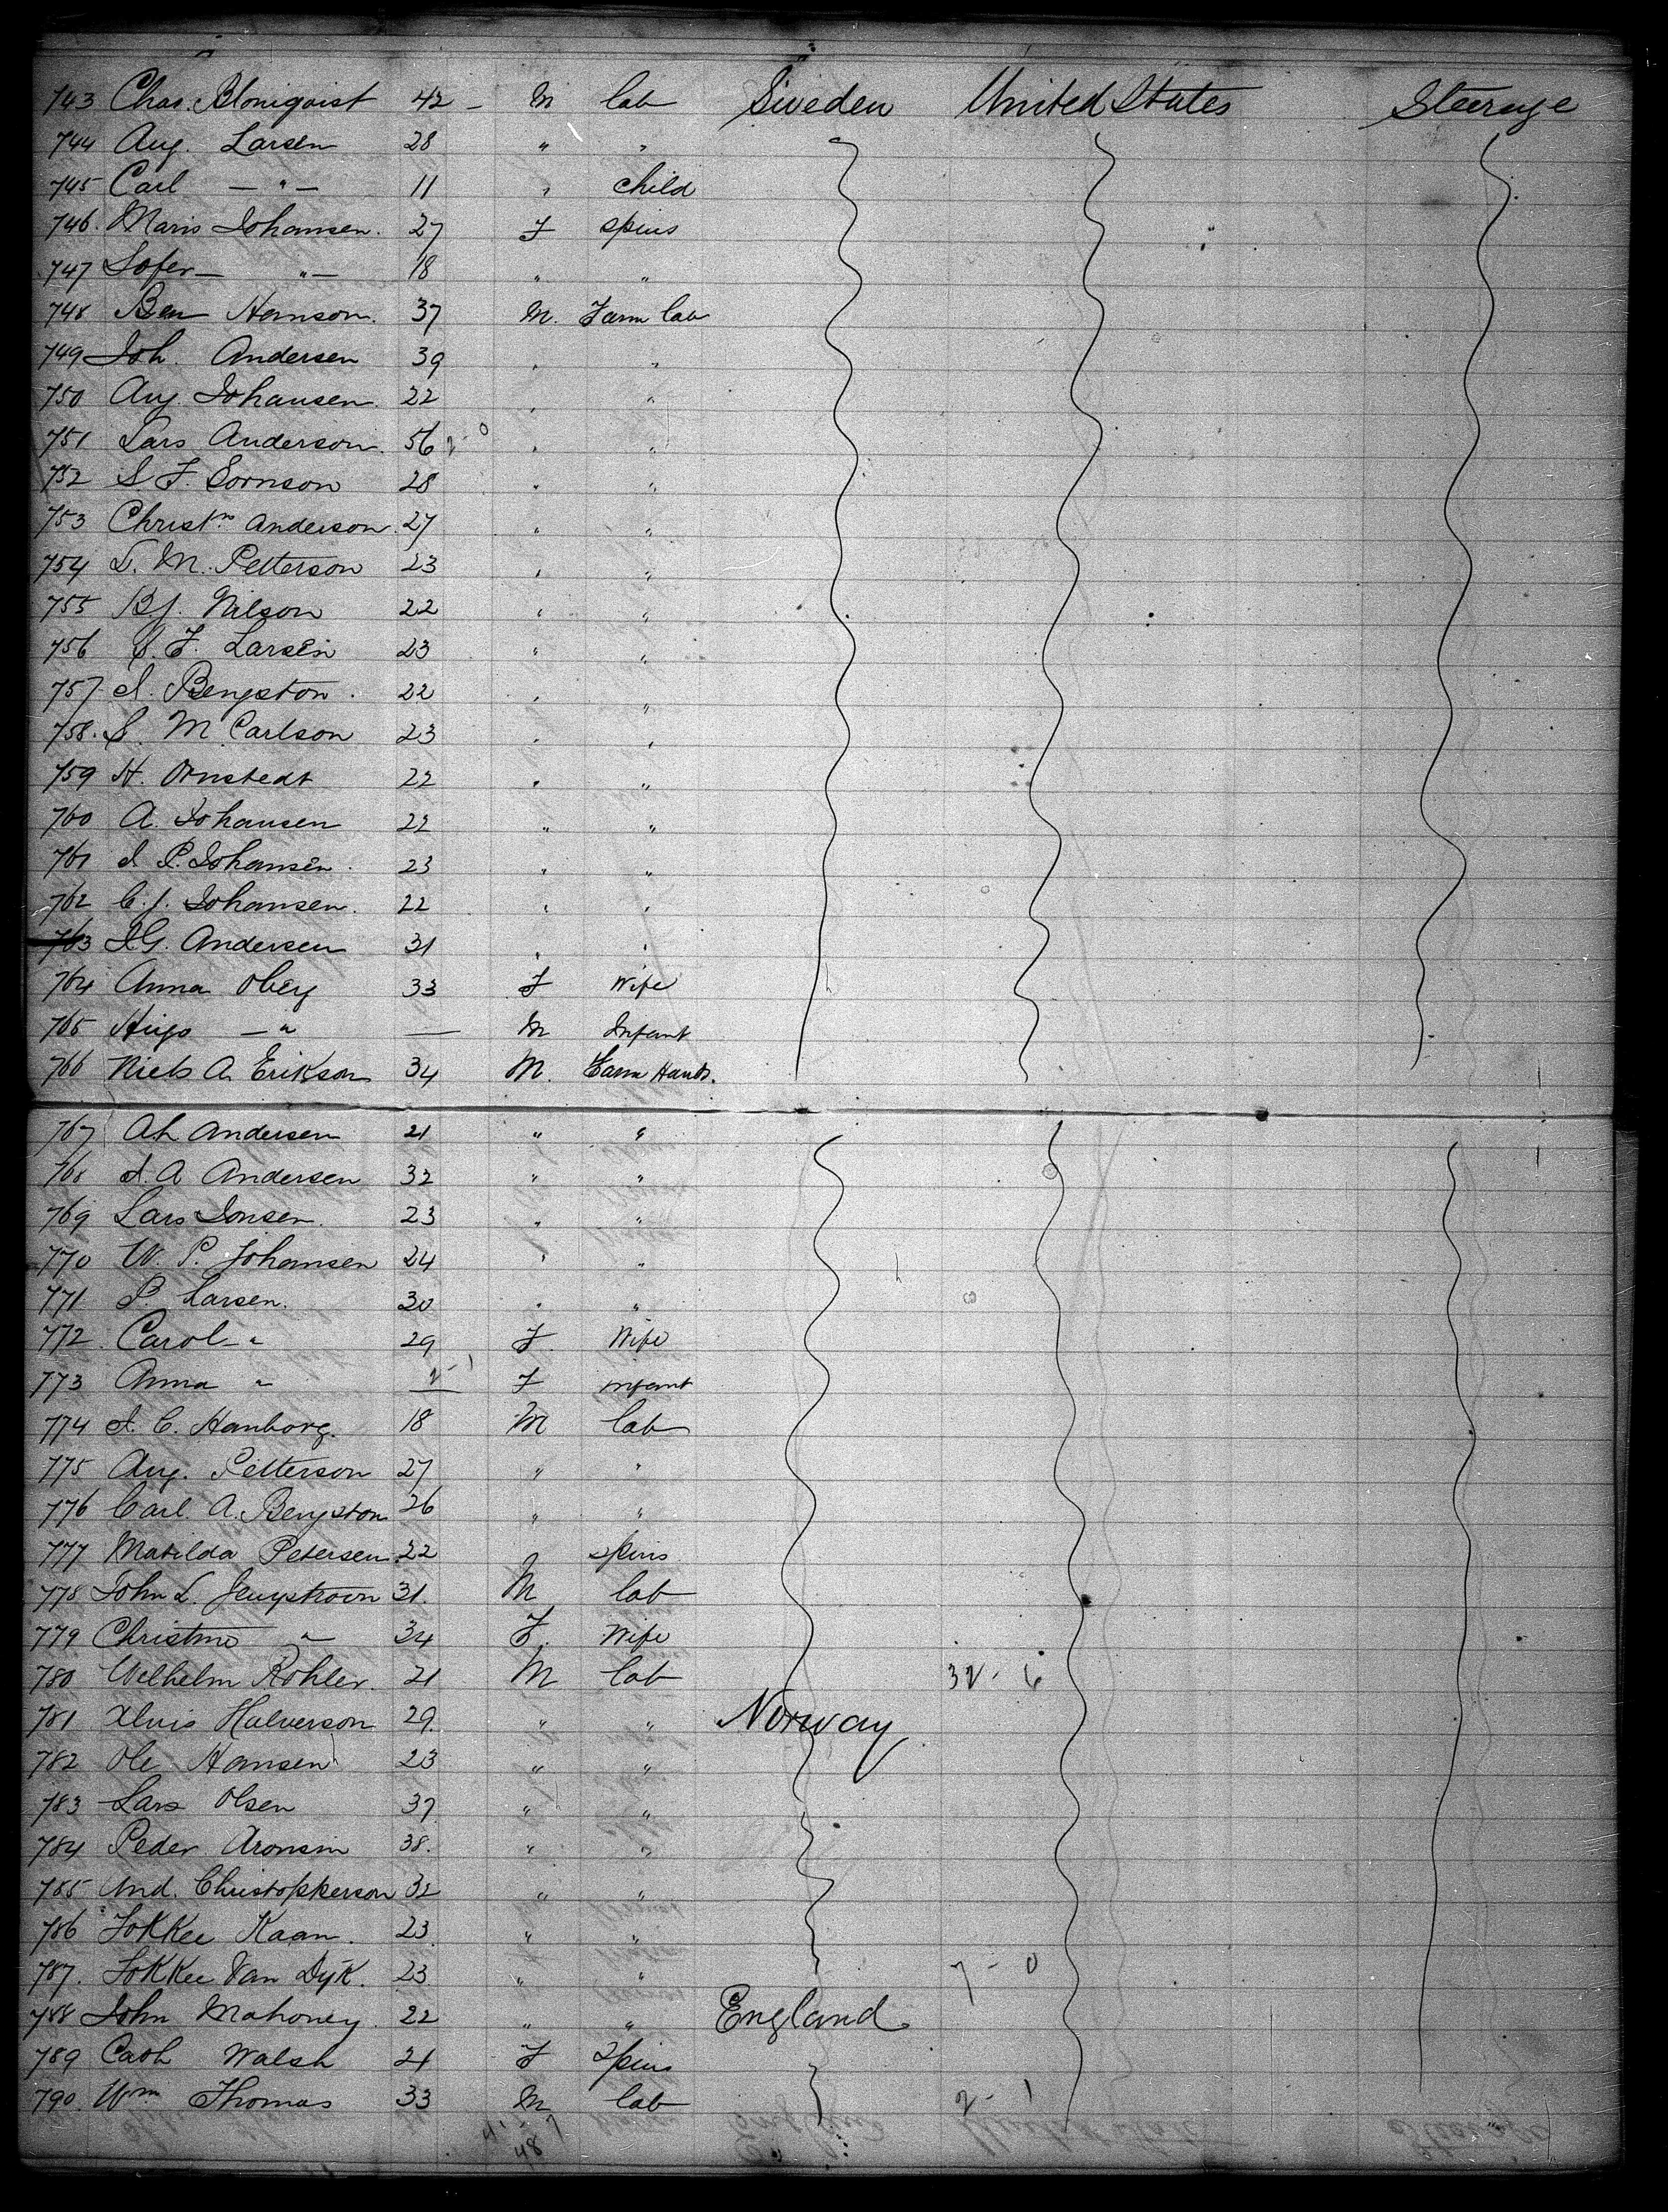 743 Chas. Blomqvist 42 - M lab Sweden United States Steerage
744 Aug. Larsen 28 " "
745 Carl — " — 11 " child
746. Maris Johansen. 27 F spins
747 Sofer — " — 18 " "
748 Ben Hanson. 37 M. Farm lab
749 Joh. Andersen 39 " "
750 Aug. Johansen. 22 " "
751 Lars Anderson. 56 2-0 " "
752 S F. Sornson 28 " "
753 Christn Anderson. 27 " "
754 L. M. Petterson 23 " "
755 B.J. Nilson 22 " "
756 F. Larsen 23 " "
757 Bengston. 22 " "
758. S. M Carlson 23 " "
759 H. Ornstedt 22 " "
760 A. Johansen 22 " "
761 J. P. Johansen. 23 " "
762 C. J. Johansen. 22 " "
763 J.G. Andersen 31 " "
764 Anna Oberg 33 F Wife
765 Hugo — " — M Infant
766 Niels A. Erikson 34 M. Farm Hands.
767 Ah Andersen 21 " "
768 J. A Andersen 32 " "
769 Lars Jonsen. 23 " "
770 W. P. Johansen 24 " "
771 P. Larsen. 30 " "
772. Carol — " 29 F. Wife
773 Anna " — 2-1 F infant
774 J. C. Hamborg. 18 M lab
775 Aug. Petterson 27 " "
776 Carl. A. Bengston 26 " "
777 Matilda Petersen. 22 spins
778 John L. 31. M lab
779 Christine " 34 F. Wife
780 Welhelm Kohler. 21 M lab 32-6
781 Halverson 29. " " Norway
782 Ole Hansen 23 " "
783 Lars Olsen 37 " "
784 Peder Aronsin 38. " "
785 And. Christopherson 32 " "
786 Fokkee Kaan. 23 " "
787. Fokkee Van Dyk. 23 " " 7-0
788 John Mahoney. 22 " " England
789 Cath Walsh 21 F Spins
790. Wm Thomas 33 M lab 2-1
48